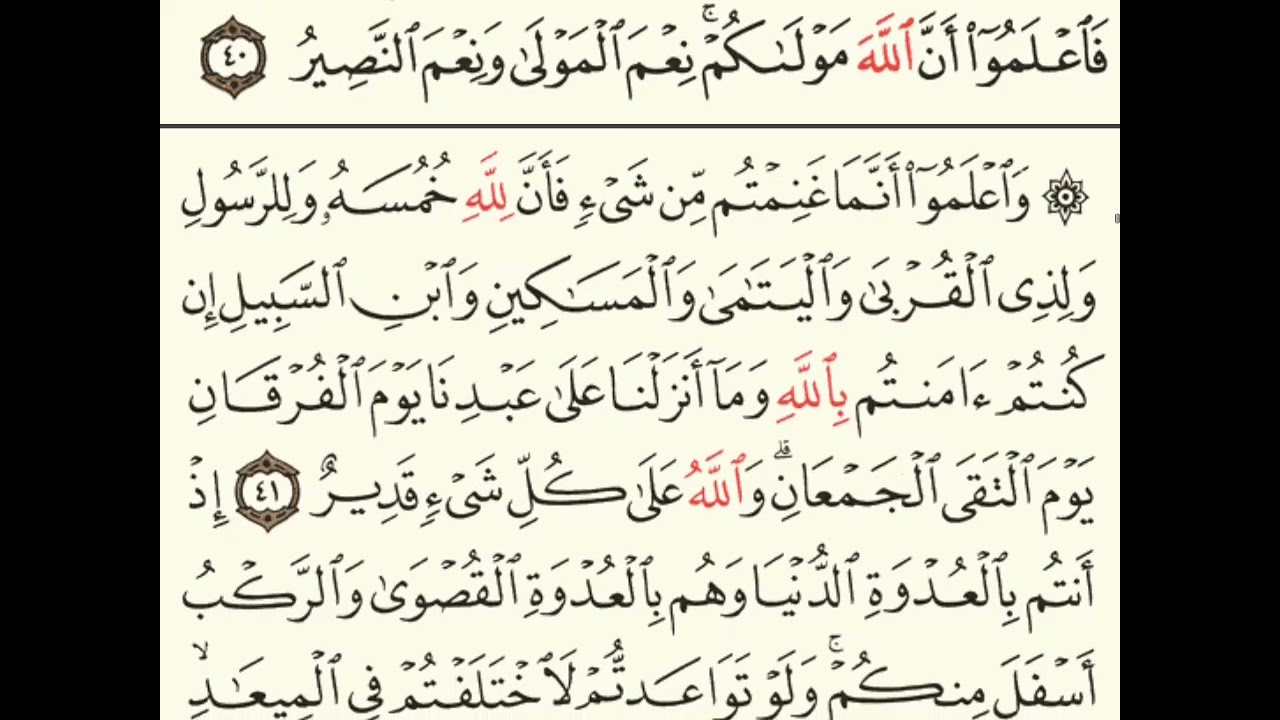 فَٱعۡلَمُوٓاْ أَنَّ ٱللَّهَ مَوۡلَىٰكُمۡۚ نِعۡمَ ٱلۡمَوۡلَىٰ وَنِعۡمَ ٱلنَّصِيرُ ٤٠
۞ وَٱعۡلَمُوٓاْ أَنَّمَا غَنِمۡتُم مِّن شَيۡءٖ فَأَنَّ لِلَّهِ خُمُسَهُۥ وَلِلرَّسُولِ
وَلِذِي ٱلۡقُرۡبَىٰ وَٱلۡيَتَٰمَىٰ وَٱلۡمَسَٰكِينِ وَٱبۡنِ ٱلسَّبِيلِ إِن
كُنتُمۡ ءَامَنتُم بِٱللَّهِ وَمَآ أَنزَلۡنَا عَلَىٰ عَبۡدِنَا يَوۡمَ ٱلۡفُرۡقَانِ
يَوۡمَ ٱلۡتَقَى ٱلۡجَمۡعَانِۗ وَٱللَّهُ عَلَىٰ كُلِّ شَيۡءٖ قَدِيرٌ ٤١ إِذۡ
أَنتُم بِٱلۡعُدۡوَةِ ٱلدُّنۡيَا وَهُم بِٱلۡعُدۡوَةِ ٱلۡقُصۡوَىٰ وَٱلرَّكۡبُ
أَسۡفَلَ مِنكُمۡۚ وَلَوۡ تَوَاعَدتُّمۡ لَٱخۡتَلَفۡتُمۡ فِي ٱلۡمِيعَٰدِ ۙ